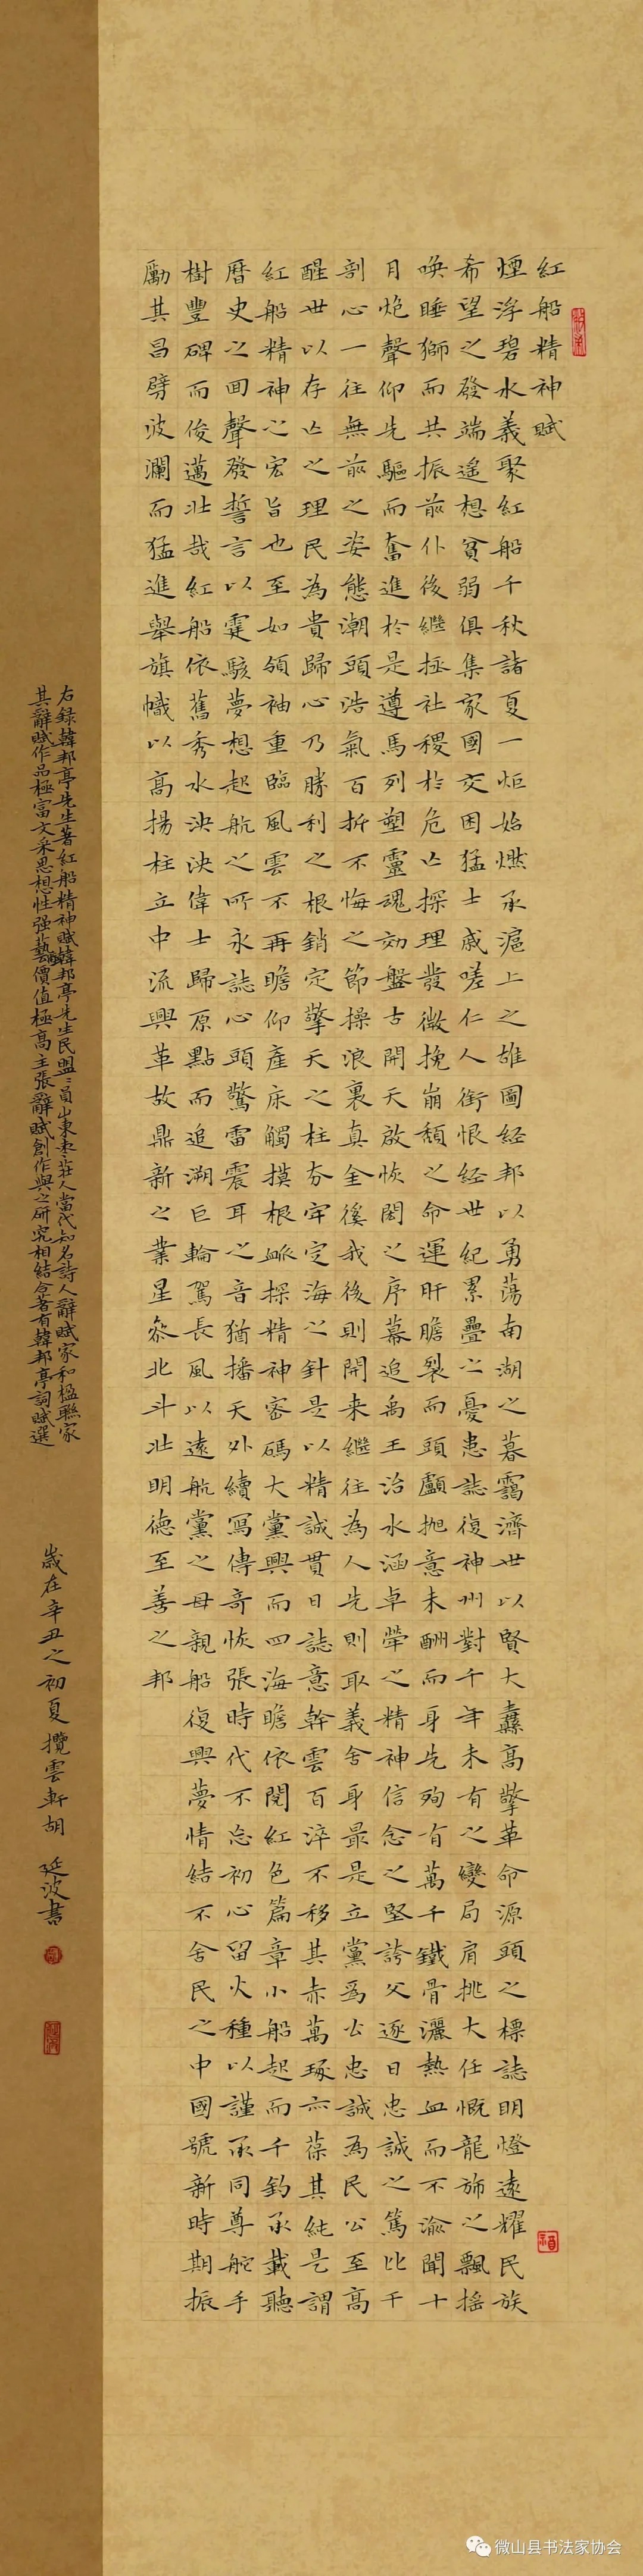 紅船精神賦
煙浮碧水義聚紅船千秋諸夏一炬始燃承滬上之雄圖經邦以勇蕩南湖之暮靄濟世以賢大纛高擎革命源頭之標誌明燈遠耀民族
希望之發端遙想貧弱俱集家國交困猛士戚嗟仁人銜恨經世紀累疊之憂患誌復神州對千年未有之變局肩挑大任慨龍旆之飄搖
喚睡獅而共振前仆後繼拯社稷於危亡探理發微挽崩頹之命運肝膽裂而頭顱拋意未酬而身先殉有萬千鐵骨灑熱血而不渝聞十
月炮聲仰先驅而奮進於是遵馬列塑靈魂効盤古開天啟恢閎之序幕追禹王治水涵卓犖之精神信念之堅誇父逐日忠誠之篤比干
剖心一往無前之姿態潮頭浩氣百折不悔之節操浪裏真金徯我後則開来繼往為人先則取義舍身最是立黨爲公忠誠為民公至高
醒世以存亡之理民為貴歸心乃勝利之根銷定擎天之柱夯牢定海之針是以精誠貫日誌意幹雲百淬不移其赤萬琢亦葆其純是謂
紅船精神之宏旨也至如領袖重臨風雲不再瞻仰產床觸摸根脈探精神密碼大黨興而四海瞻依閱紅色篇章小船起而千鈞承載聽
曆史之回聲發誓言以霆駭夢想起航之所永誌心頭驚雷震耳之音猶播天外續寫傳奇恢張時代不忘初心留火種以謹承同尊舵手
樹豐碑而俊邁壯哉紅船依舊秀水泱泱偉士歸原點而追溯巨輪駕長風以遠航黨之母親船復興夢情結不舍民之中國號新時期振
勵其昌劈波瀾而猛進舉旗幟以高揚柱立中流興革故鼎新之業星参北斗壯明德至善之邦
右錄韓邦亭先生著紅船精神賦韓邦亭先生民盟盟員山東棗莊人當代知名詩人辭賦家和楹聯家
其辭賦作品極富文采思想性强藝術價值極高主張辭賦創作與之研究相結合著有韓邦亭詞賦選
歲在辛丑之初夏攬雲軒胡延波書
微山县书法家协会